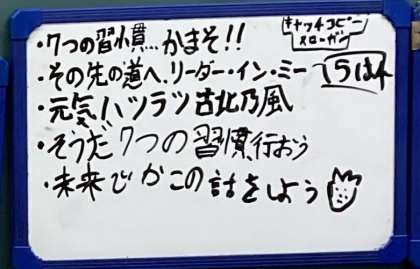 ・7つの習慣…かまそ!!
キャッチコピー
スローガン
・その先の道へ、リーダー・イン・ミー
・元気ハツラツ古北乃風
・そうだ7つの習慣行おう
・未来でかこの話をしよう